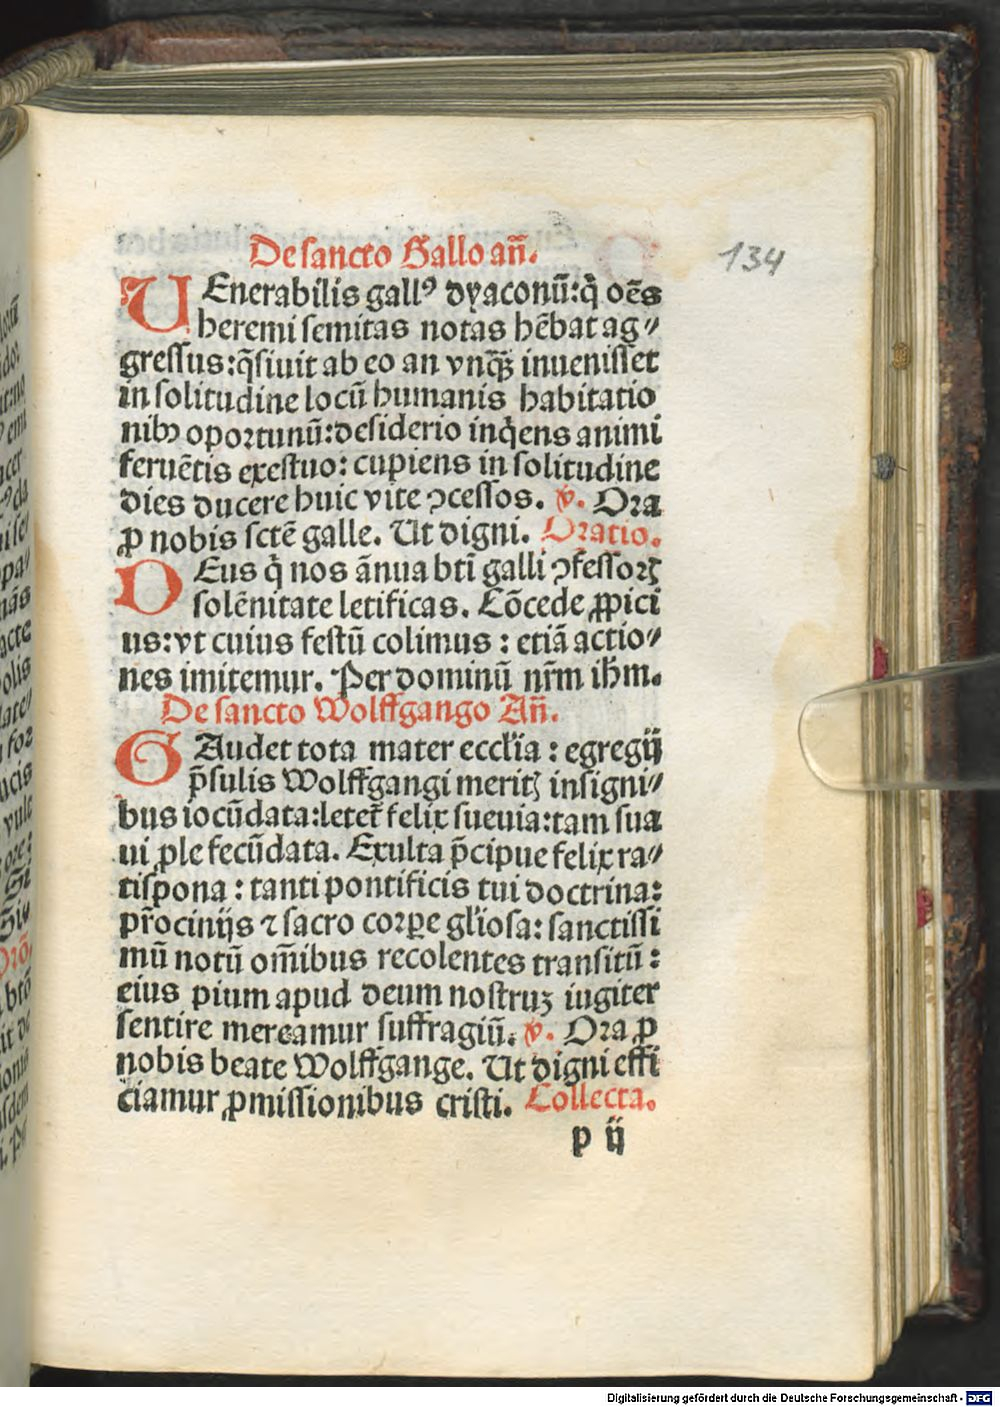 De sancto Gallo añ.
134
UEnerabilis gallꝰ dyaconũ:q̇ oẽs
heremi semitas notas hẽbat ag⸗
gressus:q̃siuit ab eo an vnq̃ꝫ inuenisset
in solitudine locũ humanis habitatio
nibꝰ oportunũ:desiderio inq̇ens animi
feruẽtis exestuo: cupiens in solitudine
dies ducere huic vite ꝯcessos. ℣. Ora
ꝓ nobis sctẽ galle. Ut digni. Oratio.
DEus q̇ nos ãnua bti̅ galli ꝯfessoꝝ
solẽnitate letificas. Cõcede ꝓpici
us:vt cuius festũ colimus : etiã actio⸗
nes imitemur. Per dominũ nr̃m ih̃m.
De sancto Wolffgango Añ.
GAudet tota mater eccl̃ia : egregij
p̃sulis Wolffgangi meritꝭ insigni⸗
bus iocũdata:letet̃ felix sueuia:tam sua
ui ꝓle fecũdata. Exulta p̃cipue felix ra⸗
tispona : tanti pontificis tui doctrina:
pr̃ocinijs ⁊ sacro corꝑe gl̃iosa: sanctissi
mũ notũ om̃ibus recolentes transitũ :
eius pium apud deum nostruꝫ iugiter
sentire mereamur suffragiũ. ℣. Ora ꝓ
nobis beate Wolffgange. Ut digni effi
ciamur ꝓmissionibus cristi. Collecta.
p ij
Digitalisierung gefördert durch die Deutsche Forschungsgemeinschaft - DFG